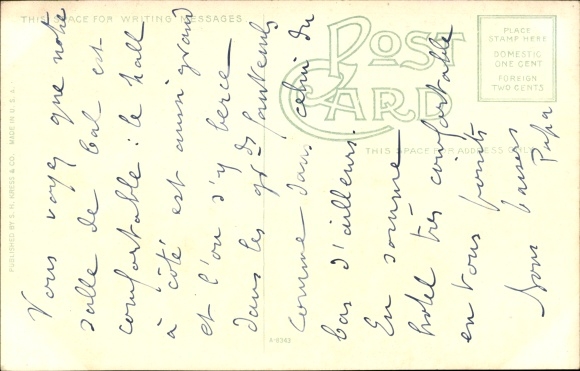 THIS SPACE FOR WRITING MESSAGES
POST
CARD
PLACE
STAMP HERE
DOMESTIC
ONE CENT
FOREIGN
TWO CENTS
THIS SPACE FOR ADDRESS ONLY
PUBLISHED BY S. H. KRESS & CO. MADE IN U.S.A.
A-6363
Vous voyez que notre
salle de bal est
comfortable : le hall
à côté est aussi grand
et l'on s'y berce
dans les gds fauteuils
comme dans celui du
bas d'ailleurs.
En somme
hotel très comfortable
en tous points
Bons baisers
Papa